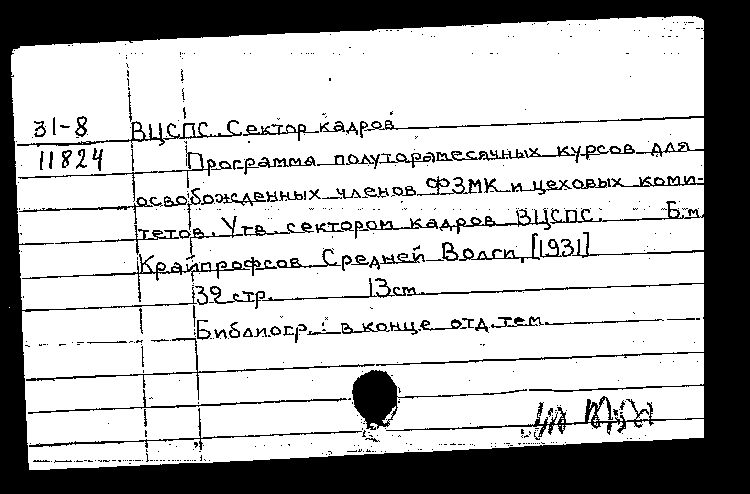 31-8 ВЦСПС. Сектор кадров
11824 Программа полуторамесячных курсов для
освобожденных членов ФЗМК и цеховых коми-
тетов. Утв. сектором кадров ВЦСПС. Б.м.
Крайпрофсов Средней Волги, [1931]
32 стр. 13 см.
Библиогр.: в конце отд. тем.